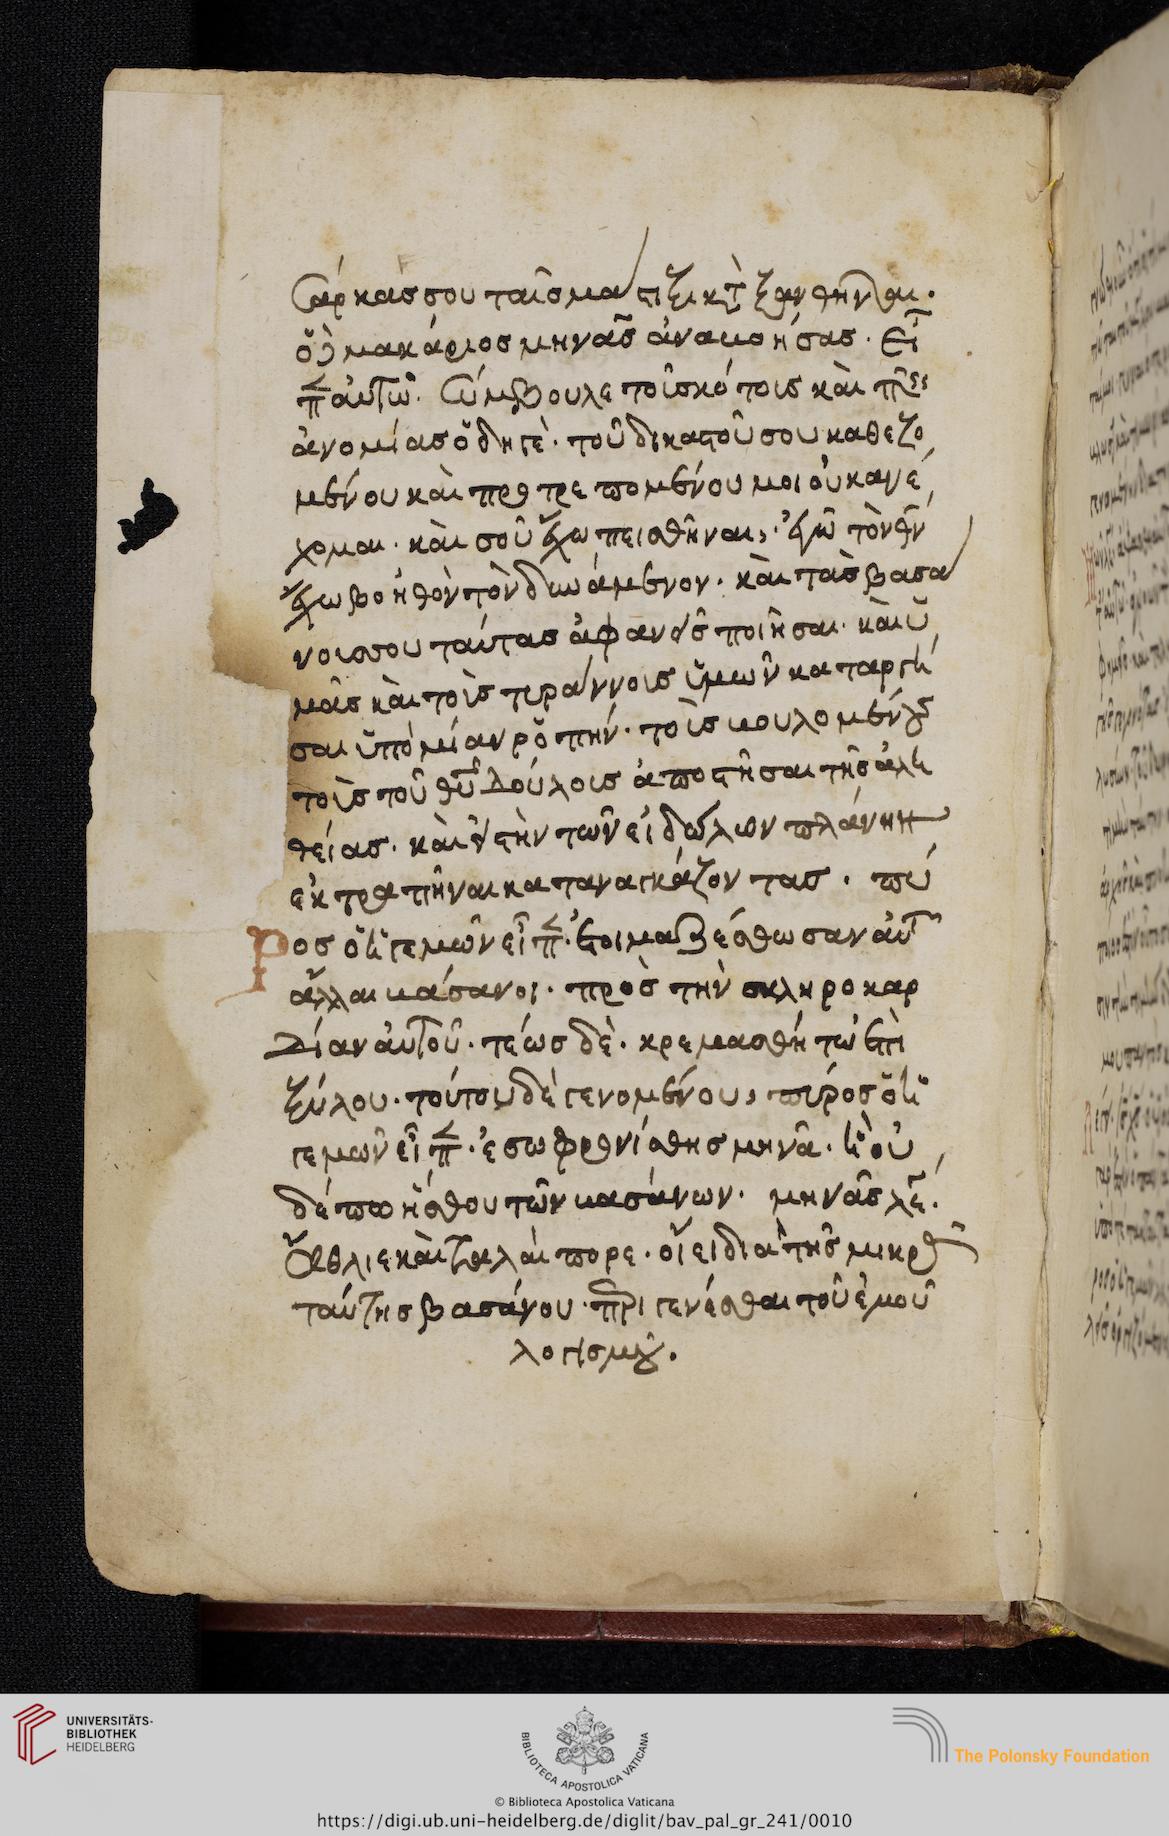 σάρκας σου ταῖς μάστιξι κατὰξανθῆναι.
ὁ δὲ μακάριος μηνᾶς ἀναβοήσας. εἶ
π αὐτῶ. σύμβουλε τοῦ σκότοις καὶ τῆς
ἀνομίας ὁδηγὲ. τοῦ δικαστοῦ σου καθεζο
μένου καὶ προτρεπομένου μοι οὐκ ἀνέ
χομαι. καὶ σοῦ ἔχω πεισθῆναι, ἐγὼ τὸν θν
ἔχω βοηθὸν τὸν δυνάμενον. καὶ τὰς βασά
νοις σου ταύτας ἀφανεῖς ποιῆσαι. καὶ ὑ
μᾶς καὶ τοῖς τυράννοις ὑμῶν καταργῆ
σαι ὑπὸ μίαν ῥοπήν. τοῖς βουλομένους
τοῖς τοῦ θυ δούλοις ἀποστῆσαι τῆς ἀλη
θείας. καὶ ἐν τὴν τῶν εἰδώλων πλάνην
ἐκτραπῆναι καταναγκάζοντας. πύ
ρος ὁ ἡγεμὼν εἶπ. ἑτοιμαζέσθωσαν αὐτῶ
ἄλλαι βάσανοι. πρὸς τὴν σκληροκαρ
δίαν αὐτοῦ. τέως δὲ. κρεμασθήτω ἐπὶ
ξύλου. τούτου δὲ γενομένου, πύρος ὁ ἡ
γεμὼν εἶπ. ἐσωφρονίσθης μηνᾶ. ἢ οὐ
δέπω ἤσθου τῶν βασάνων. μηνᾶς λέ.
ἄθλιε καὶ ταλαίπορε. οἴει διὰ τῆς μικρᾶς
ταύτης βασάνου. περιγενέσθαι τοῦ ἐμοῦ
λογισμοῦ.
UNIVERSITÄTS-
BIBLIOTHEK
HEIDELBERG
BIBLIOTECA APOSTOLICA VATICANA
The Polonsky Foundation
© Biblioteca Apostolica Vaticana
https://digi.ub.uni-heidelberg.de/diglit/bav_pal_gr_241/0010